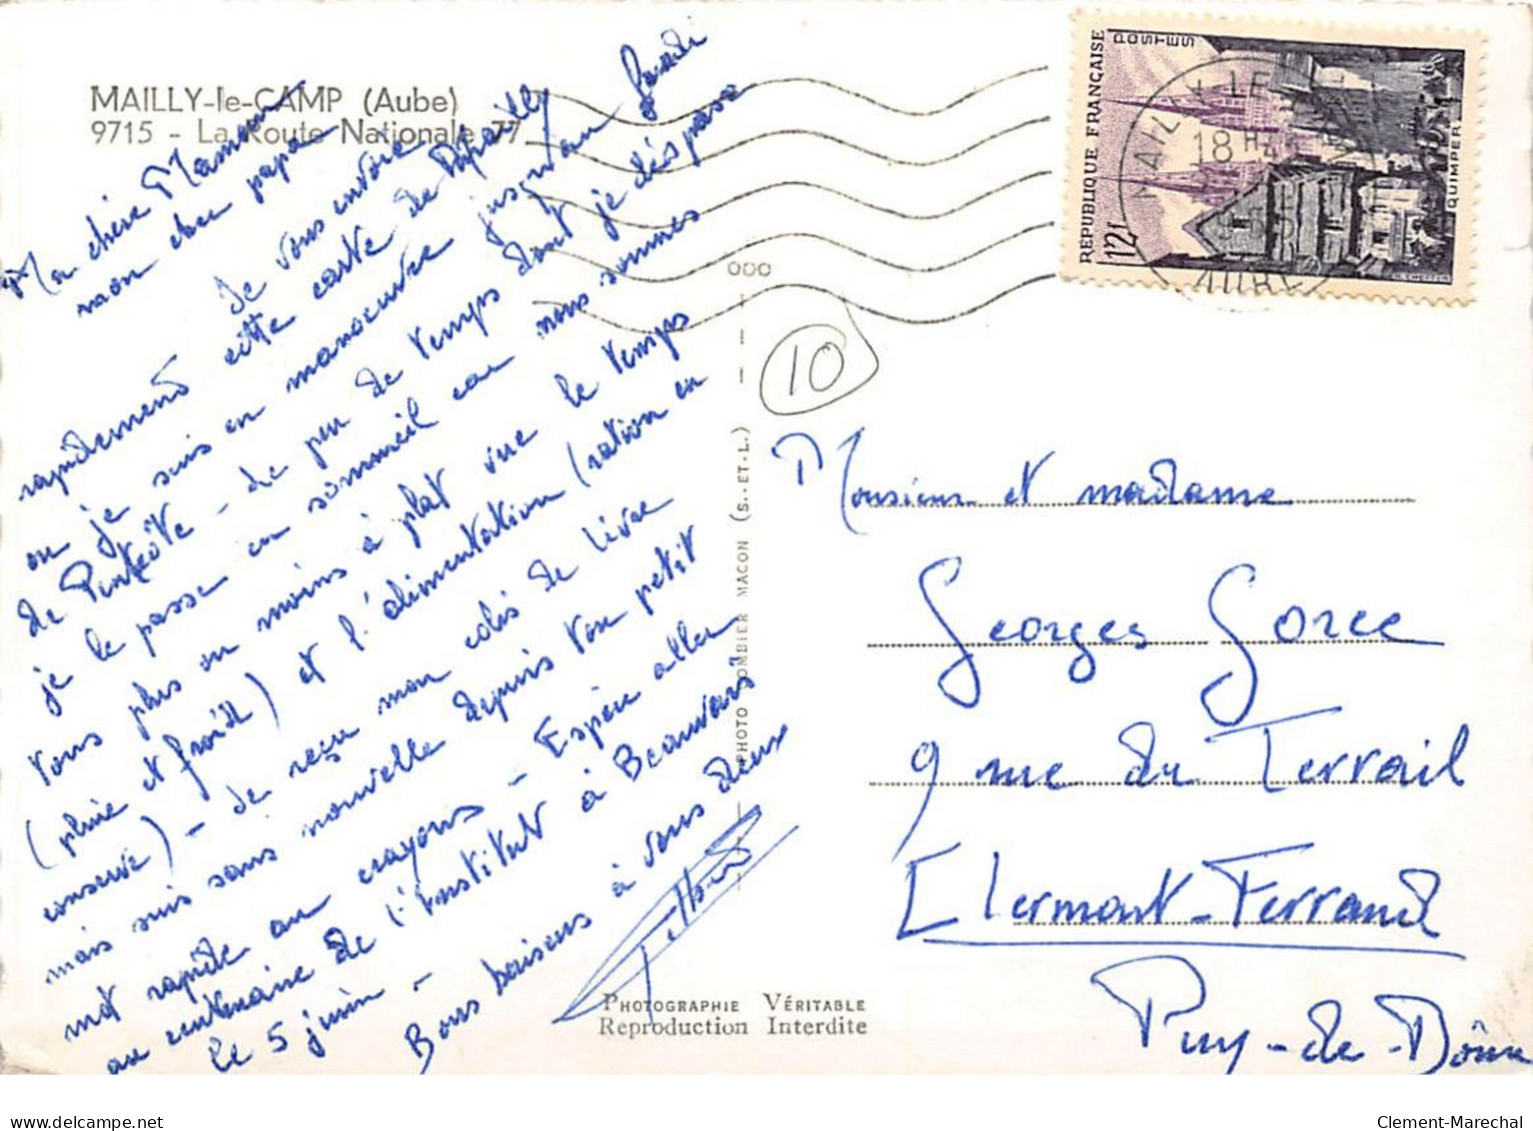 MAILLY-le-CAMP (Aube)
9715 - La Route Nationale 77
Ma chère Maman
mon cher papa
Je vous envoie
rapidement cette carte de Mailly
ou je suis en manoeuvre jusqu'au jeudi
de Pentcôte - de peu de temps dont je dispose
je le passe en sommeil car nous sommes
tous plus ou moins à plat vue le temps
(pluie et froid) et l'alimentation (ration en
conserve) - de reçu mon colis de livre
mais suis sans nouvelle depuis ton petit
mot rapide au crayons - Espère aller
au centenaire de l'Institut à Beauvais
le 5 juin -
Bons baisers à vous deux
PHOTOGRAPHIE VÉRITABLE
Reproduction Interdite
PHOTO COMBIER MACON (S.-ET-L.)
10
RÉPUBLIQUE FRANÇAISE
POSTES
12F
QUIMPER
18 H
AUBE
Monsieur et madame
Georges Gorce
9 rue du Terrail
Clermont-Ferrand
Puy-de-Dôme
Clement-Marechal